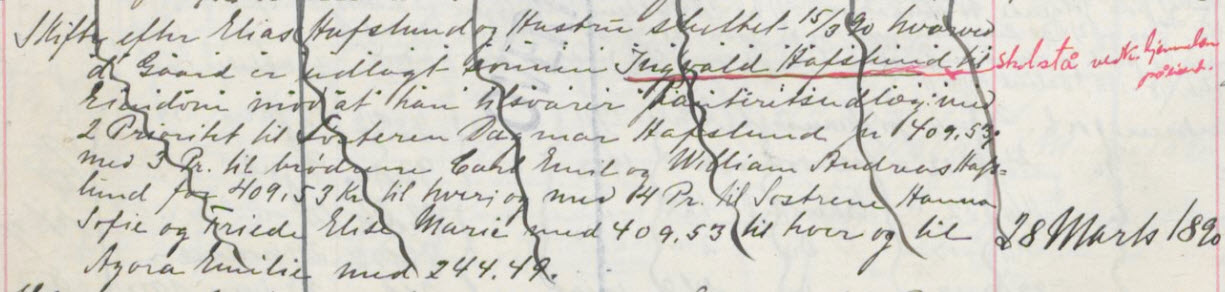 Skifte efter Elias Hafslund og Hustru sluttet 15/3 90 hvorved
d. Gaard er udlagt sønnen Ingvald Hafslund til
Eiendom mod at han tilsvarer Panteretsudlæg med
2 Prioritet til Søsteren Dagmar Hafslund kr 409,53.
med 3 Pr. til brødrene Carl Emil og William Andreas Hafs=
lund for 409,53 Kr til hver og med 4 Pr. til Søstrene Hanna
Sofie og Friede Elise Marie med 409,53 til hver og til
Agora Emilie med 244.49.
skal stå vedk. hjemmelen
28 Marts 1890